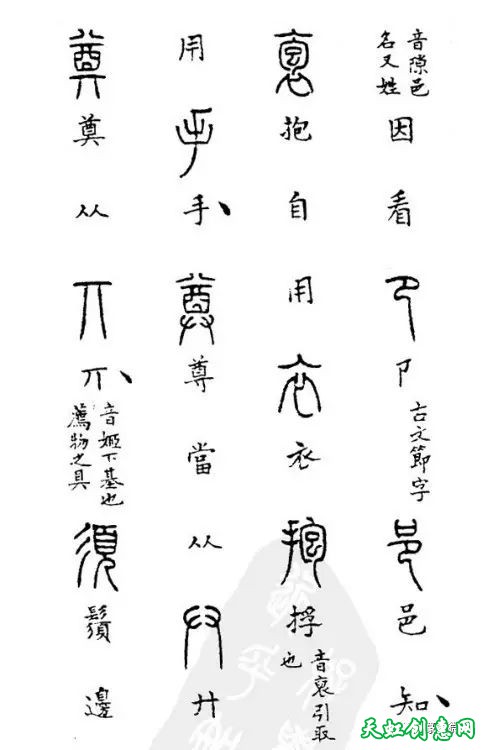 音隙邑名又姓因看卩卩古文節字邑邑知、
袌抱自用衣衣捊音裒引取也
用手手、尊尊當从廾廾
奠奠从丌丌、音姬下基也薦物之具須鬚邊
天虹创意网